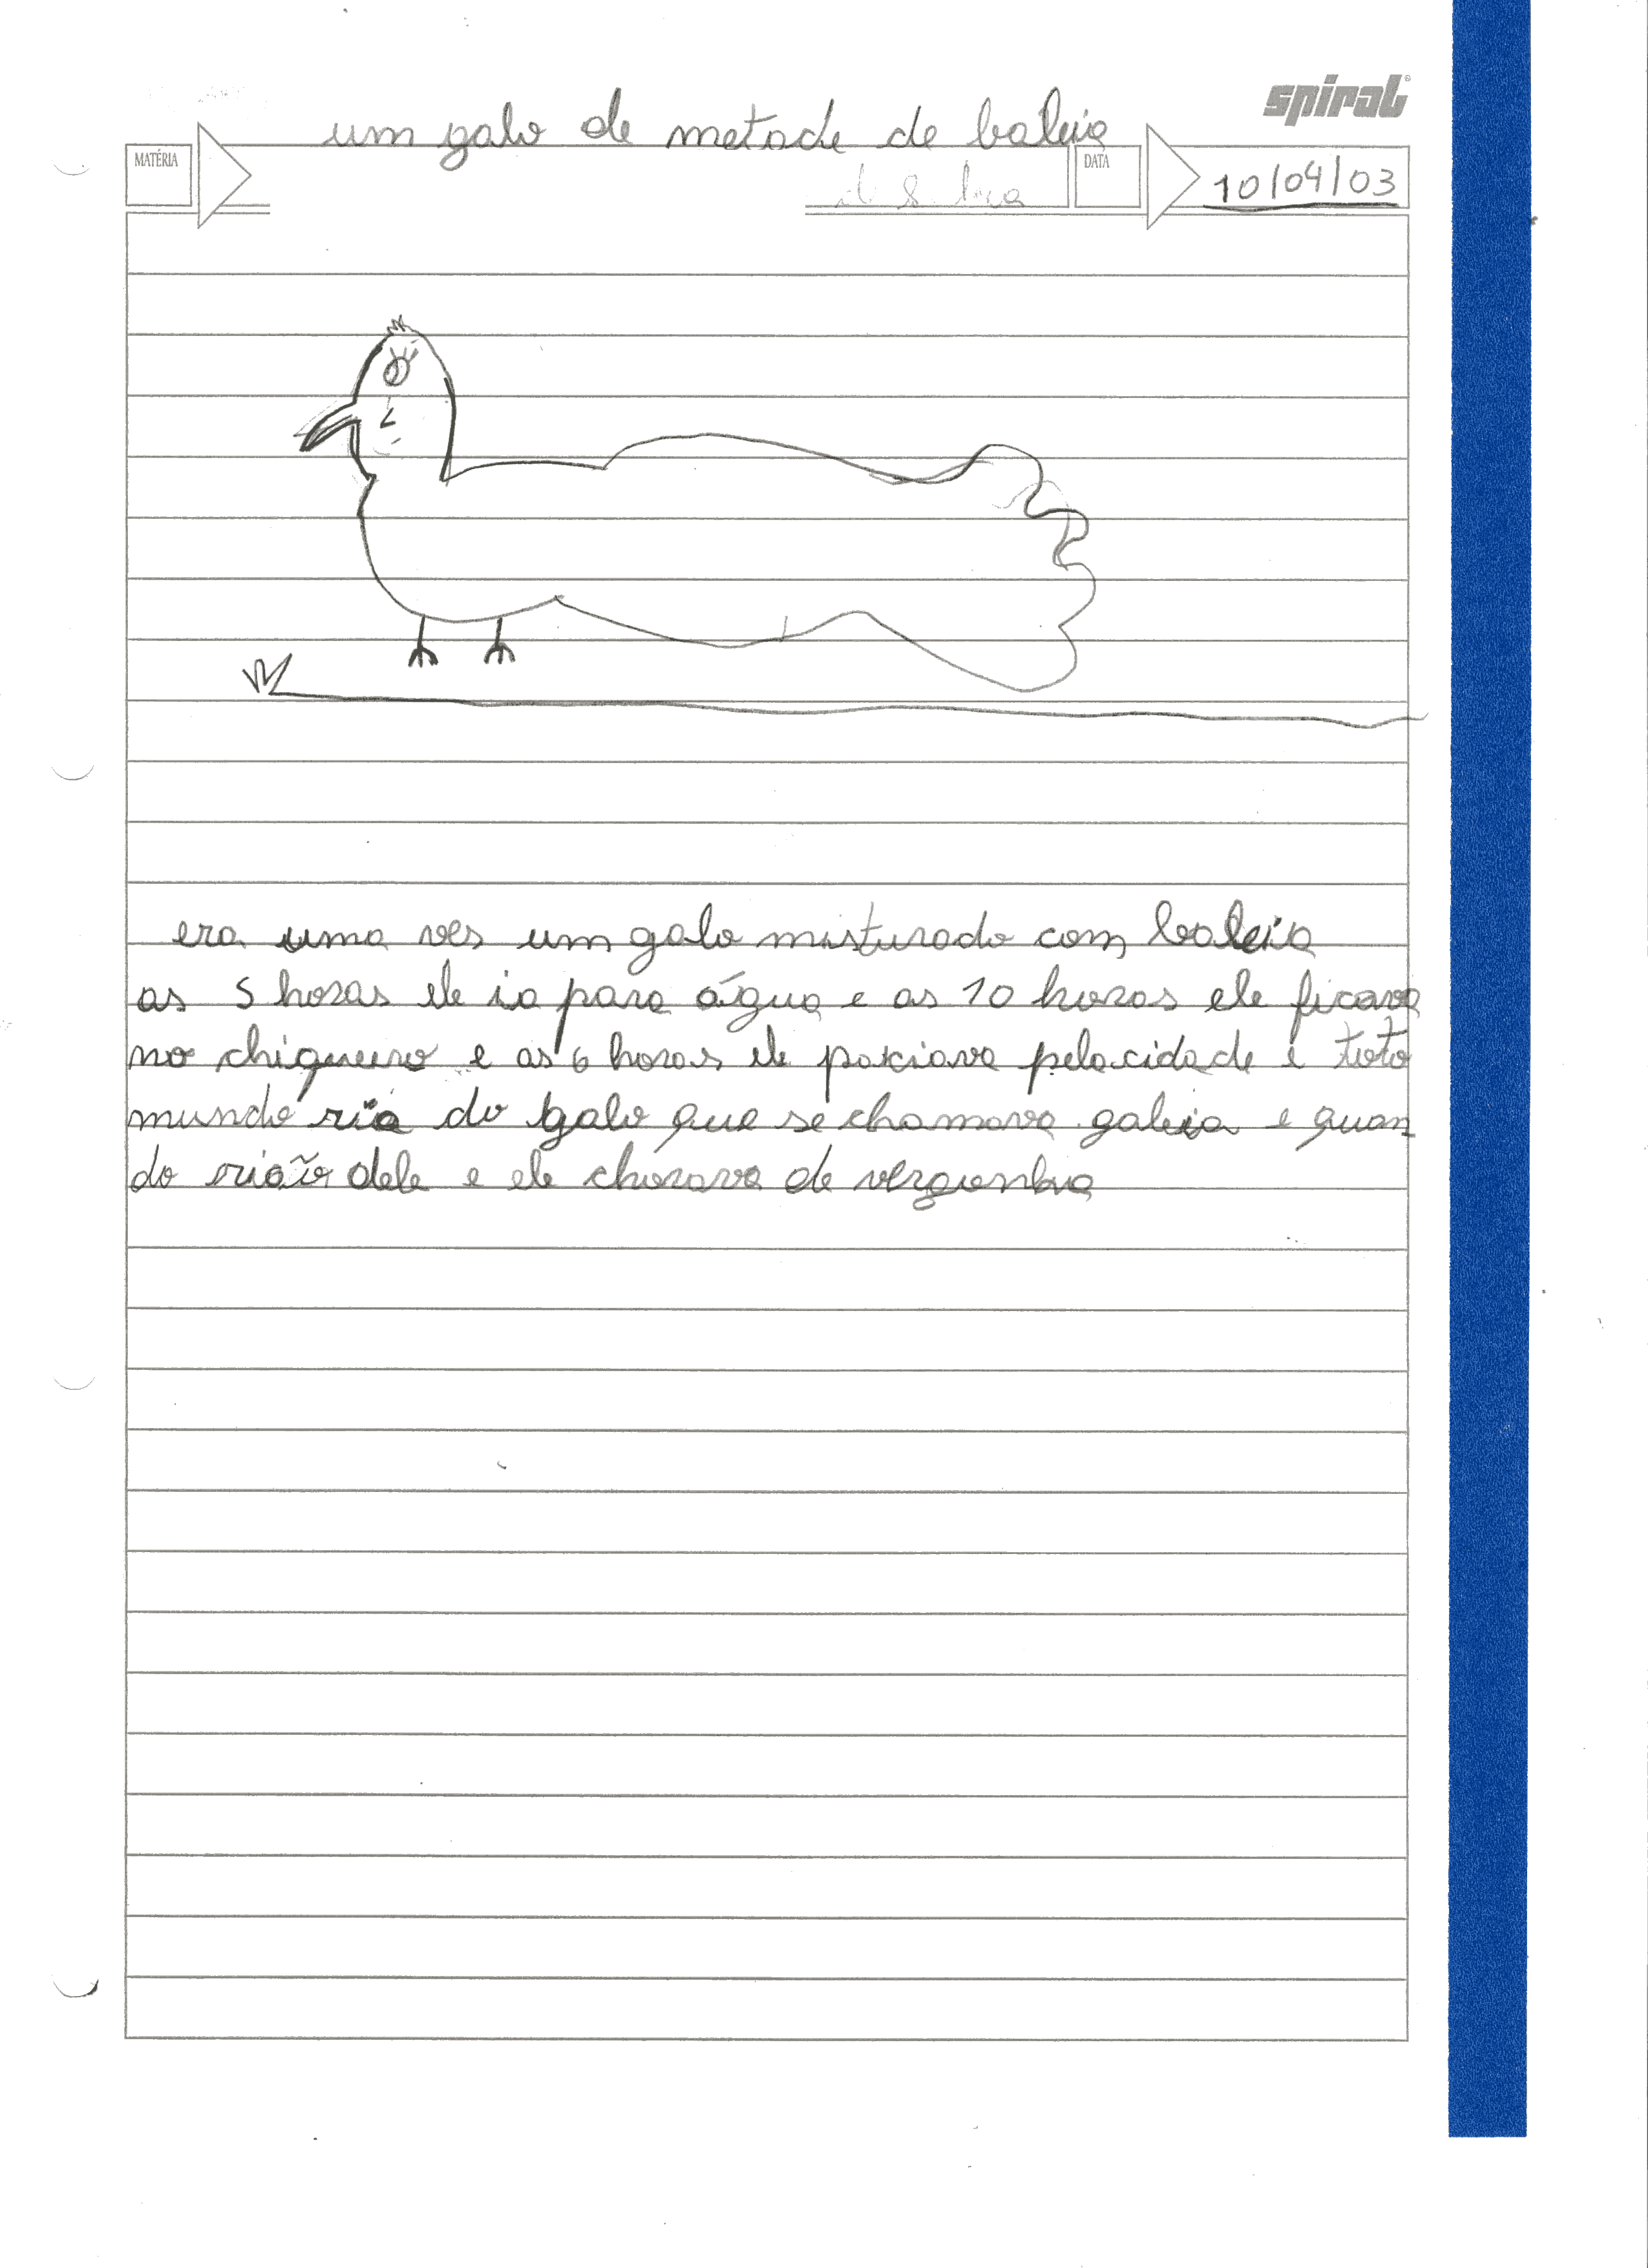 spiral
um galo de metade de baleia
MATÉRIA
DATA
10/04/03
era uma ves um galo misturado com baleia
as 5 horas ele ia para água e as 10 horas ele ficava
no chiqueiro e as 6 horas ele pasciava pela cidade e toto
mundo ria do galo que se chamava galeia e quan
do riaão dele e ele chorava de vergonha